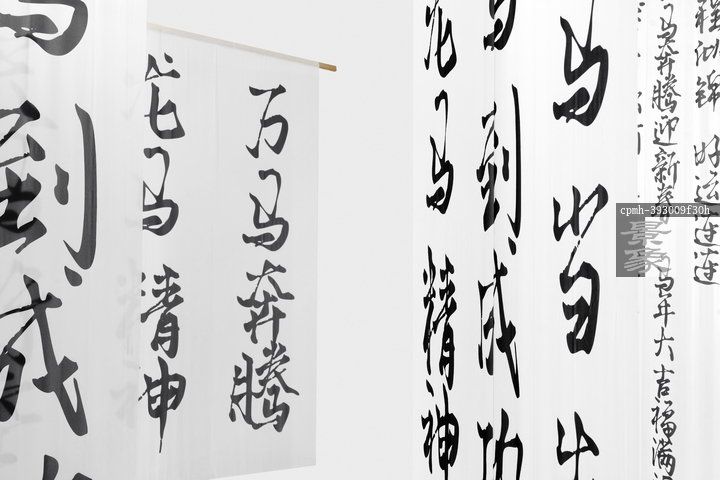 马到成
龙马精神
万马奔腾
龙马精神
马到成功
马当先
马奔腾迎新春 马年大吉福满
程似锦 好运连连
cpmh-393009f30h
景象